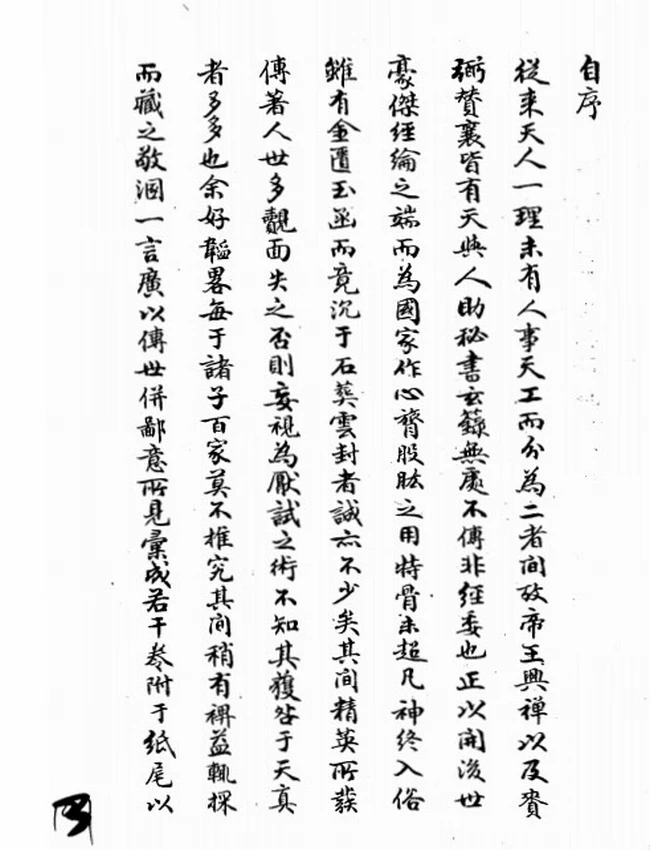 自序
從来天人一理未有人事天工而分為二者間攷帝王興禅以及賚
弼賛襄皆有天與人助秘書玄籙無處不傳非經委也正以開後世
豪傑經綸之端而為國家作心膂股肱之用特骨未超凡神终入俗
雖有金匱玉函而竟沉于石葬雲封者誠亦不少矣其間精英所發
傳著人世多覿面失之否則妄視為厭試之術不知其獲咎于天真
者多多也余好韜畧每于諸子百家莫不推究其间稍有裨益輒採
而藏之敬涸一言廣以傳世併鄙意所見彙成若干卷附于紙尾以